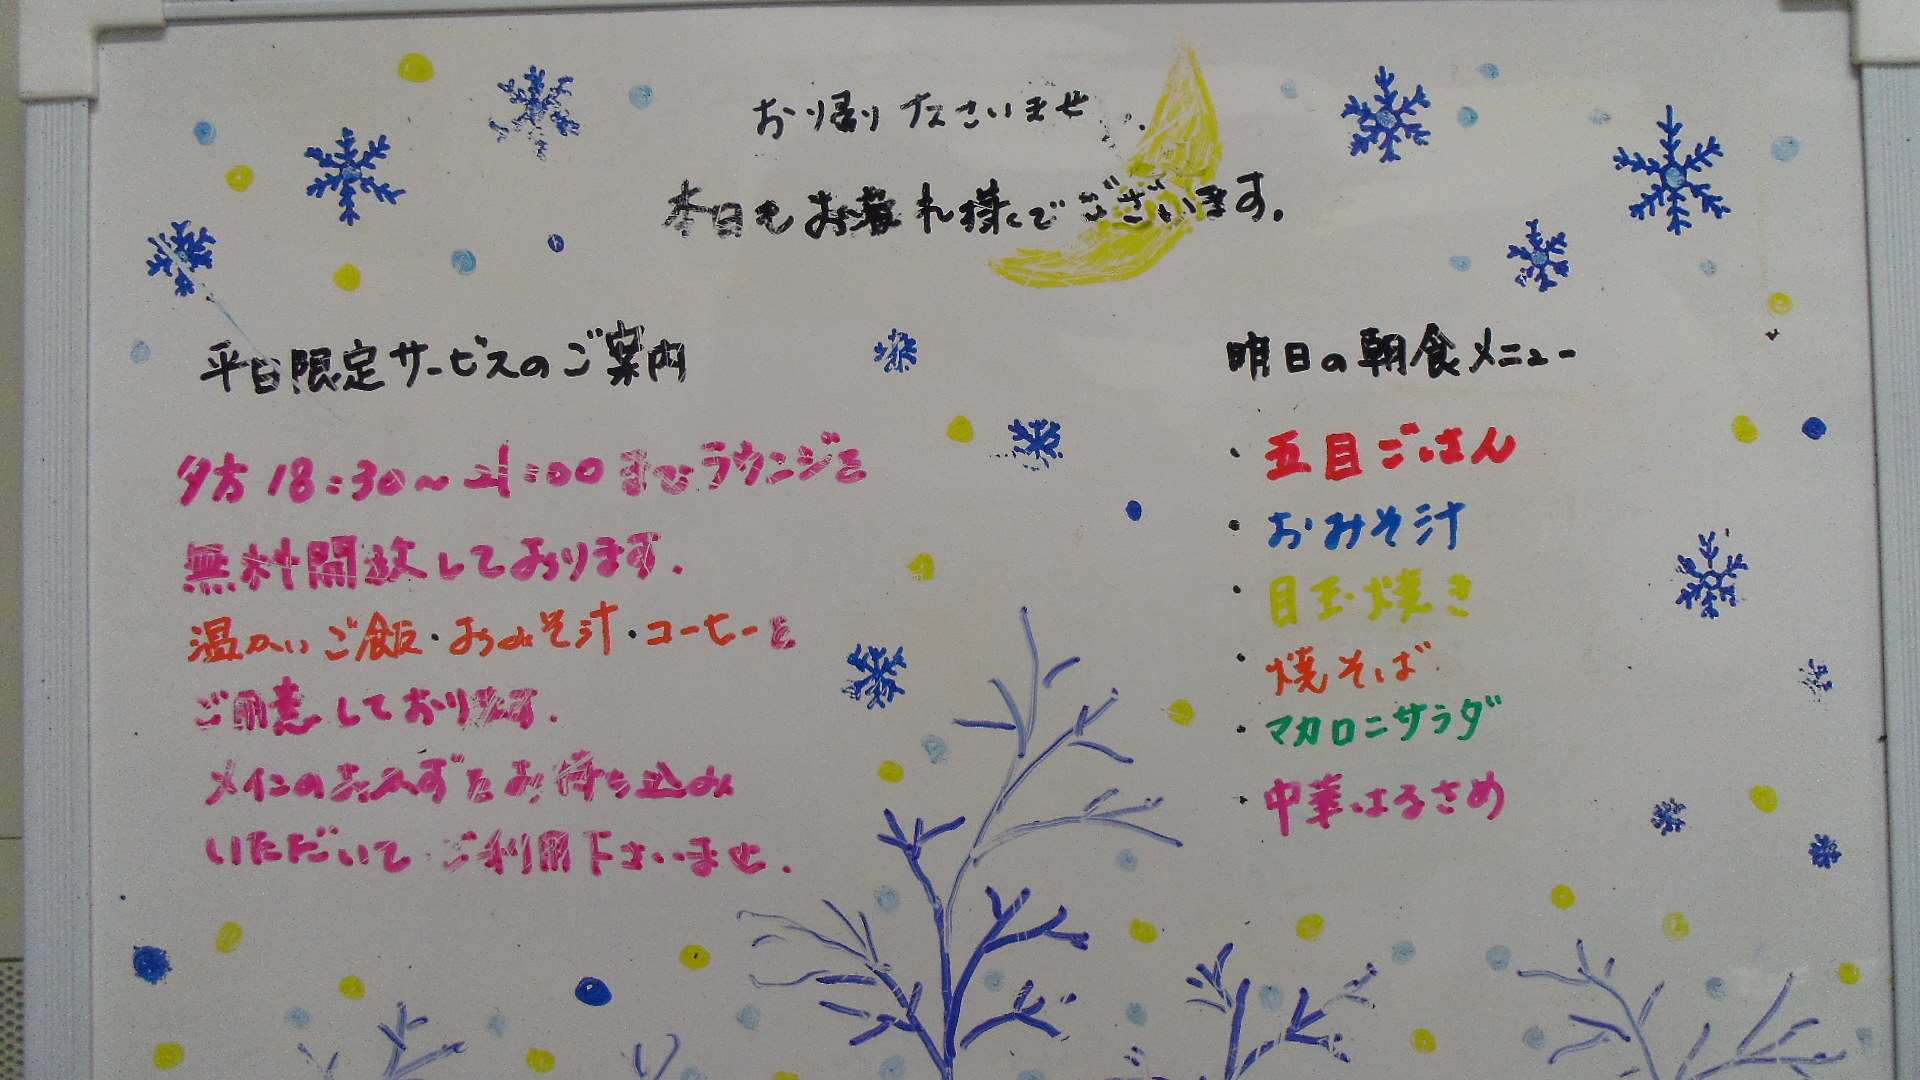 お帰りなさいませ.
本日もお疲れ様でございます。
平日限定サービスのご案内
夕方18:30～21:00までラウンジを
無料開放しております。
温かいご飯・おみそ汁・コーヒーを
ご用意しております。
メインのおかずをお持ち込み
いただいてご利用下さいませ。
明日の朝食メニュー
・五目ごはん
・おみそ汁
・目玉焼き
・焼そば
・マカロニサラダ
・中華はるさめ